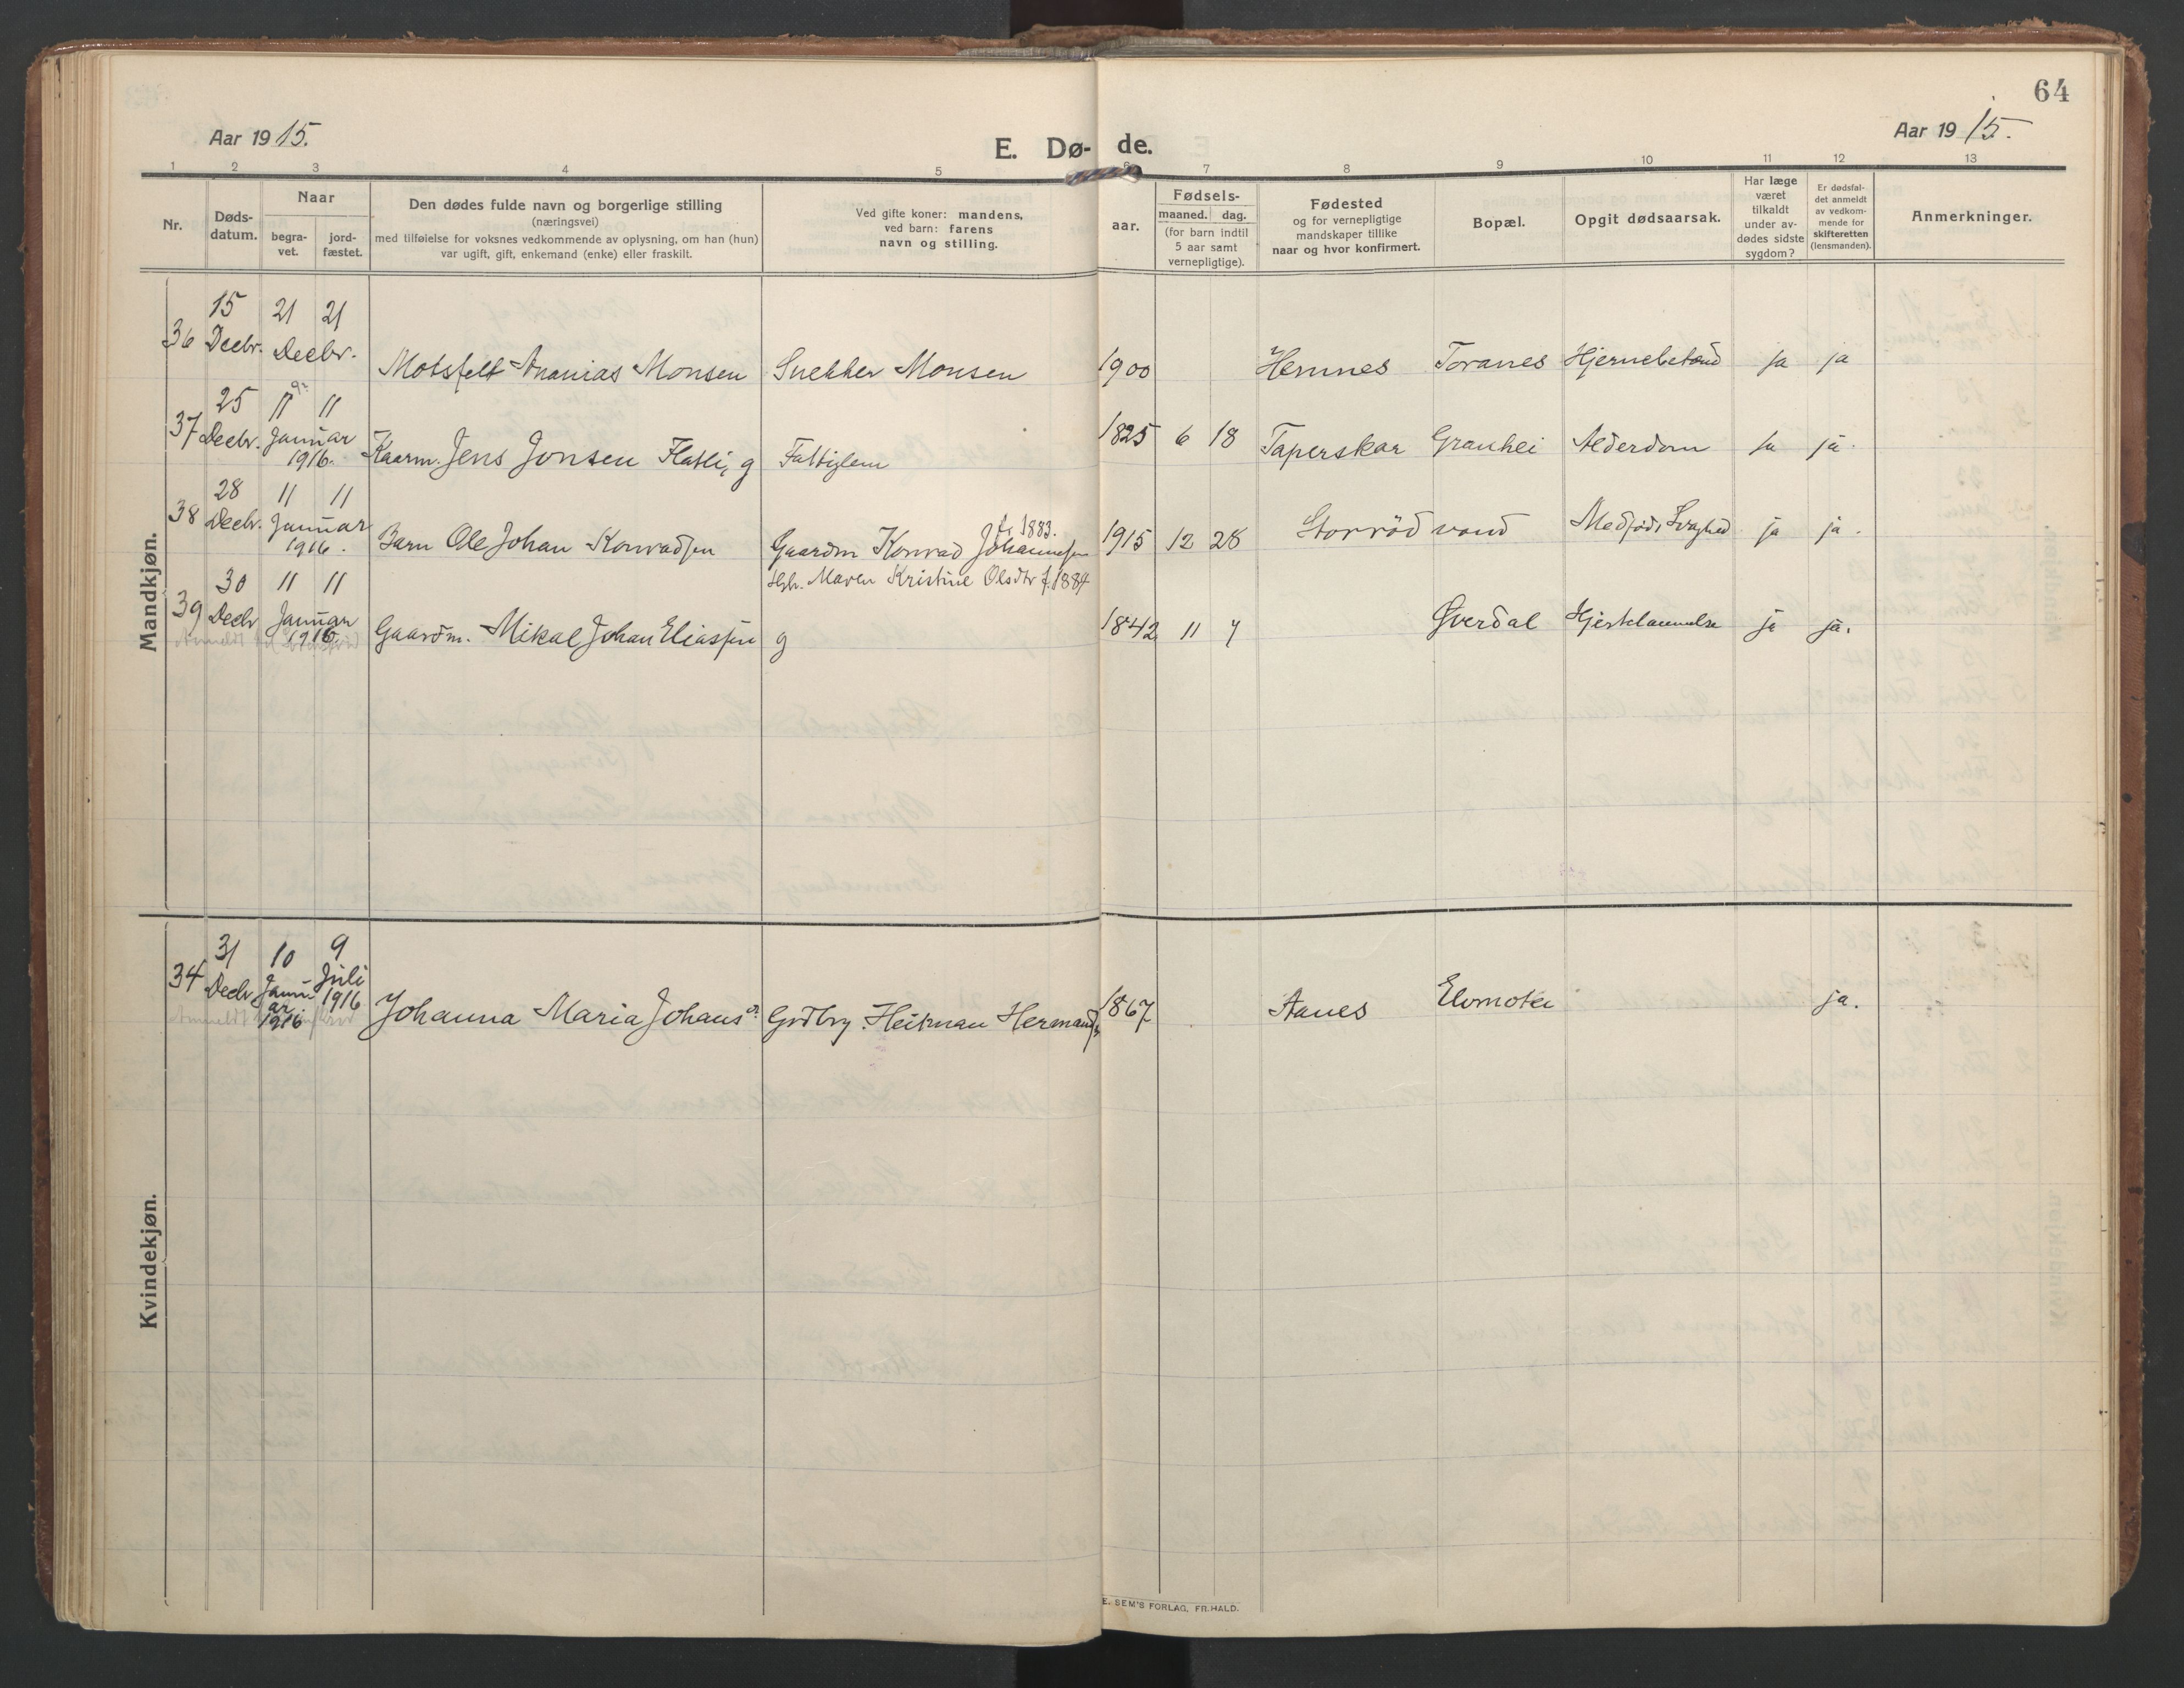 64
Aar 1915.
E. Dø- de.
Aar 1915.
1 2 3 4 5 6 7 8 9 10 11 12 13
Nr.
Døds-
datum.
Naar
begra-
vet.
jord-
fæstet.
Den dødes fulde navn og borgerlige stilling
(næringsvei)
med tilføielse for voksnes vedkommende av oplysning, om han (hun)
var ugift, gift, enkemand (enke) eller fraskilt.
Ved gifte koner: mandens,
ved barn: farens
navn og stilling.
aar.
Fødsels-
maaned. dag.
(for barn indtil
5 aar samt
vernepligtige).
Fødested
og for vernepligtige
mandskaper tillike
naar og hvor konfirmert.
Bopæl.
Opgit dødsaarsak.
Har læge
været
tilkaldt
under av-
dødes sidste
sygdom?
Er dødsfal-
det anmeldt
av vedkom-
mende for
skifteretten
(lensmanden).
Anmerkninger.
Mandkjøn.
15 21 21
36 Decbr. Decbr. Motsfelt Ananias Monsen Snekker Monsen 1900 Hemnes Toranes Hjernebetænd ja ja
25 11 11
37 Decbr. Januar 1916. Kaarm. Jens Jonsen Flatli, g Fattiglem 1825 6 18 Taperskar Granhei Alderdom ja ja.
28 11 11
38 Decbr. Januar 1916. Barn Ole Johan Konradsen Gaardm Konrad Johannesen f. 1883. 1915 12 28 Storrödvand Medfød. Svaghed ja ja.
Maren Kristine Olsdtr f. 1884
30 11 11
39 Decbr Januar 1916 Gaardm. Mikal Johan Eliassen g 1842 11 7 Øverdal Hjertelammelse ja ja.
Anmeldt
Kvindekjøn.
31 10 9
34 Decbr Janu-
ar
1916 Juli
1916 Johanna Maria Johansd. Grdbrg. Heikman Hermans. 1867 Aanes Elvmoten ja.
Anmeldt
E. SEM'S FORLAG, FR.HALD.